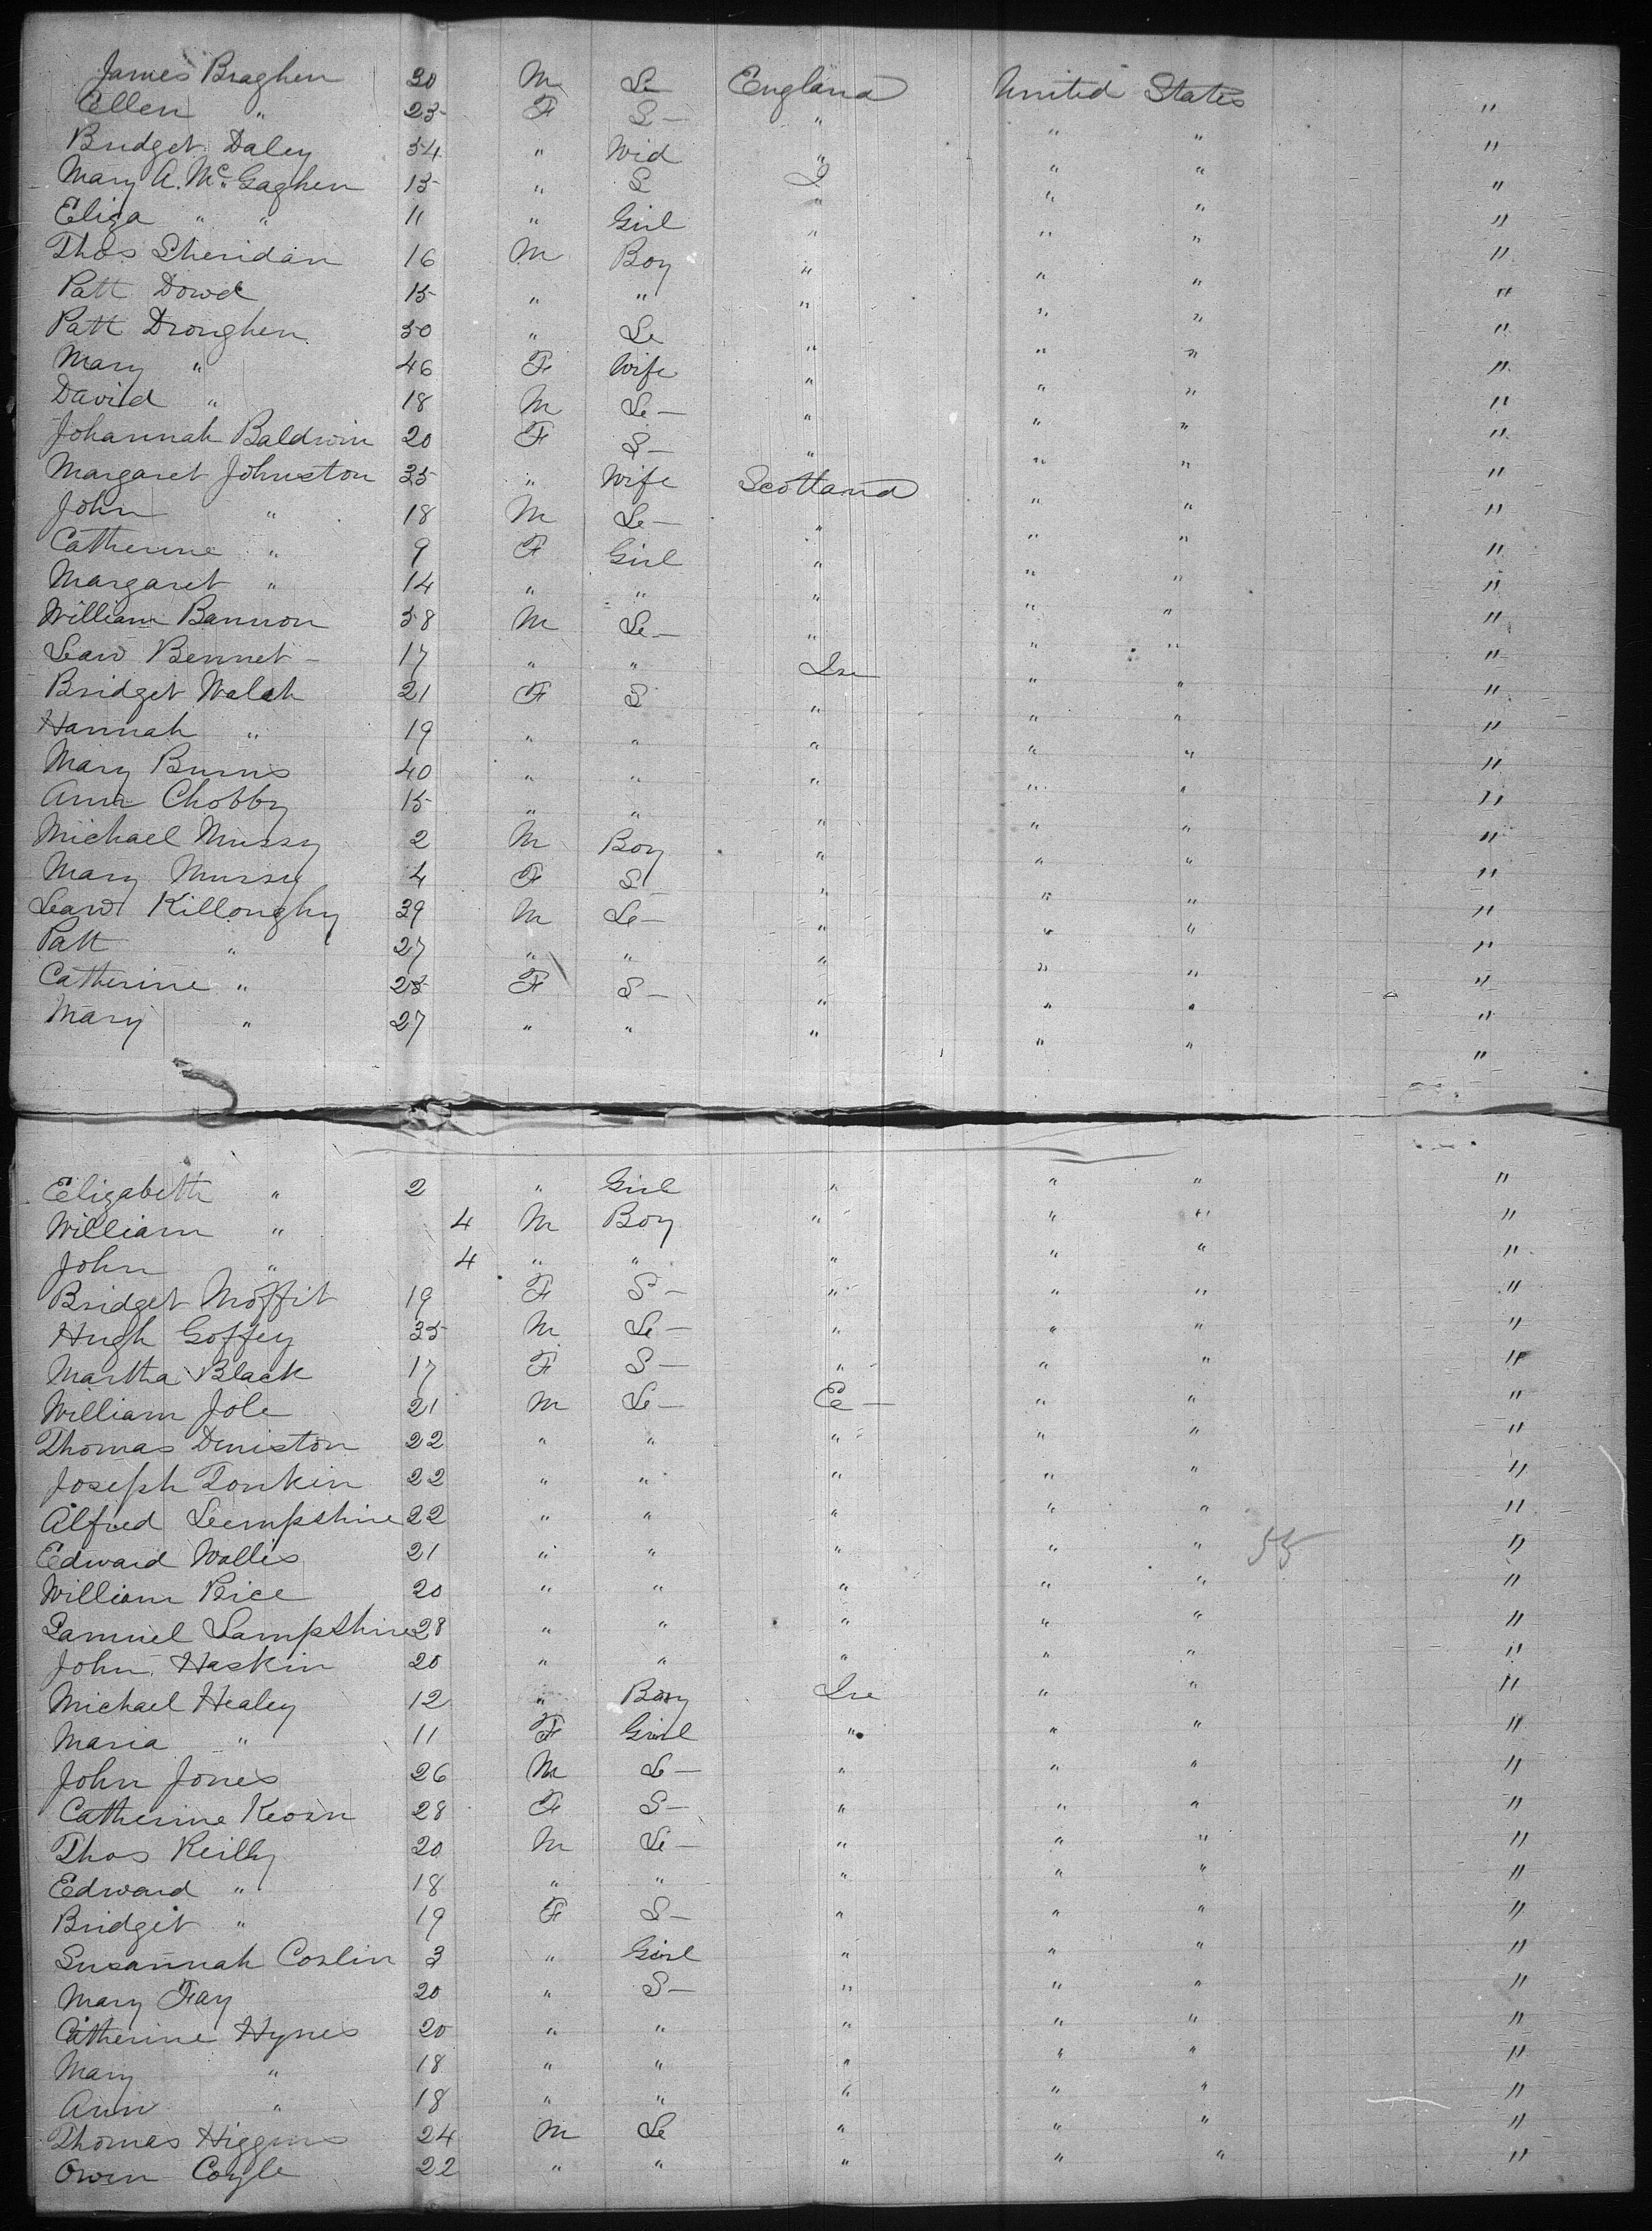 James Braghen 30 M Le England United States
Ellen " 25 F S — " " " "
Bridget Daley 54 " Wid " " " "
Mary A. McGaghen 15 " S I " " "
Eliza " " 11 " Girl " " " "
Thos Sheridan 16 M Boy " " " "
Patt Dowd 15 " " " " " "
Patt Droughen 50 " Le " " " "
Mary " 46 F Wife " " " "
David " 18 M Le — " " " "
Johannah Baldwin 20 F S — " " " "
Margaret Johnston 35 " Wife Scotland " " "
John " 18 M Le — " " " "
Catherine " 9 F Girl " " " "
Margaret " 14 " " " " " "
William Bannon 58 M Le — " " " "
Bennet — 17 " " Ire " " "
Bridget Walsh 21 F S " " " "
Hannah " 19 " " " " " "
Mary Burns 40 " " " " " "
Ann Chobby 15 " " " " " "
Michael Mursy 2 M Boy " " " "
Mary Mursy 4 F S " " " "
Killoughy 39 M Le — " " " "
Patt " 27 " " " " " "
Catherine " 25 F S — " " " "
Mary " 27 " " " " " "
Elizabeth " 2 " Girl " " " "
William " 4 M Boy " " " "
John " 4 " " " " " "
Bridget Moffit 19 F S — " " " "
Hugh Goffey 35 M Le — " " " "
Martha Black 17 F S — " " " "
William Jole 21 M Le — E — " " "
Thomas Deniston 22 " " " " " "
Joseph Tonkin 22 " " " " " "
Alfred Lempshire 22 " " " " " "
Edward Wallis 21 " " " " " "
William Price 20 " " " " " "
Samuel Lampshire 28 " " " " " "
John Haskin 20 " " " " " "
Michael Healey 12 " Boy Ire " " "
Maria " 11 F Girl " " " "
John Jones 26 M Le — " " " "
Catherine Keosn 28 F S — " " " "
Thos Reilly 20 M Le — " " " "
Edward " 18 " " " " " "
Bridget " 19 F S — " " " "
Susannah Coslin 3 " Girl " " " "
Mary Fay 20 " S — " " " "
Catherine Hynes 20 " " " " " "
Mary " 18 " " " " " "
Ann " 18 " " " " " "
Thomas Higgins 24 M Le " " " "
Owen Coyle 22 " " " " " "